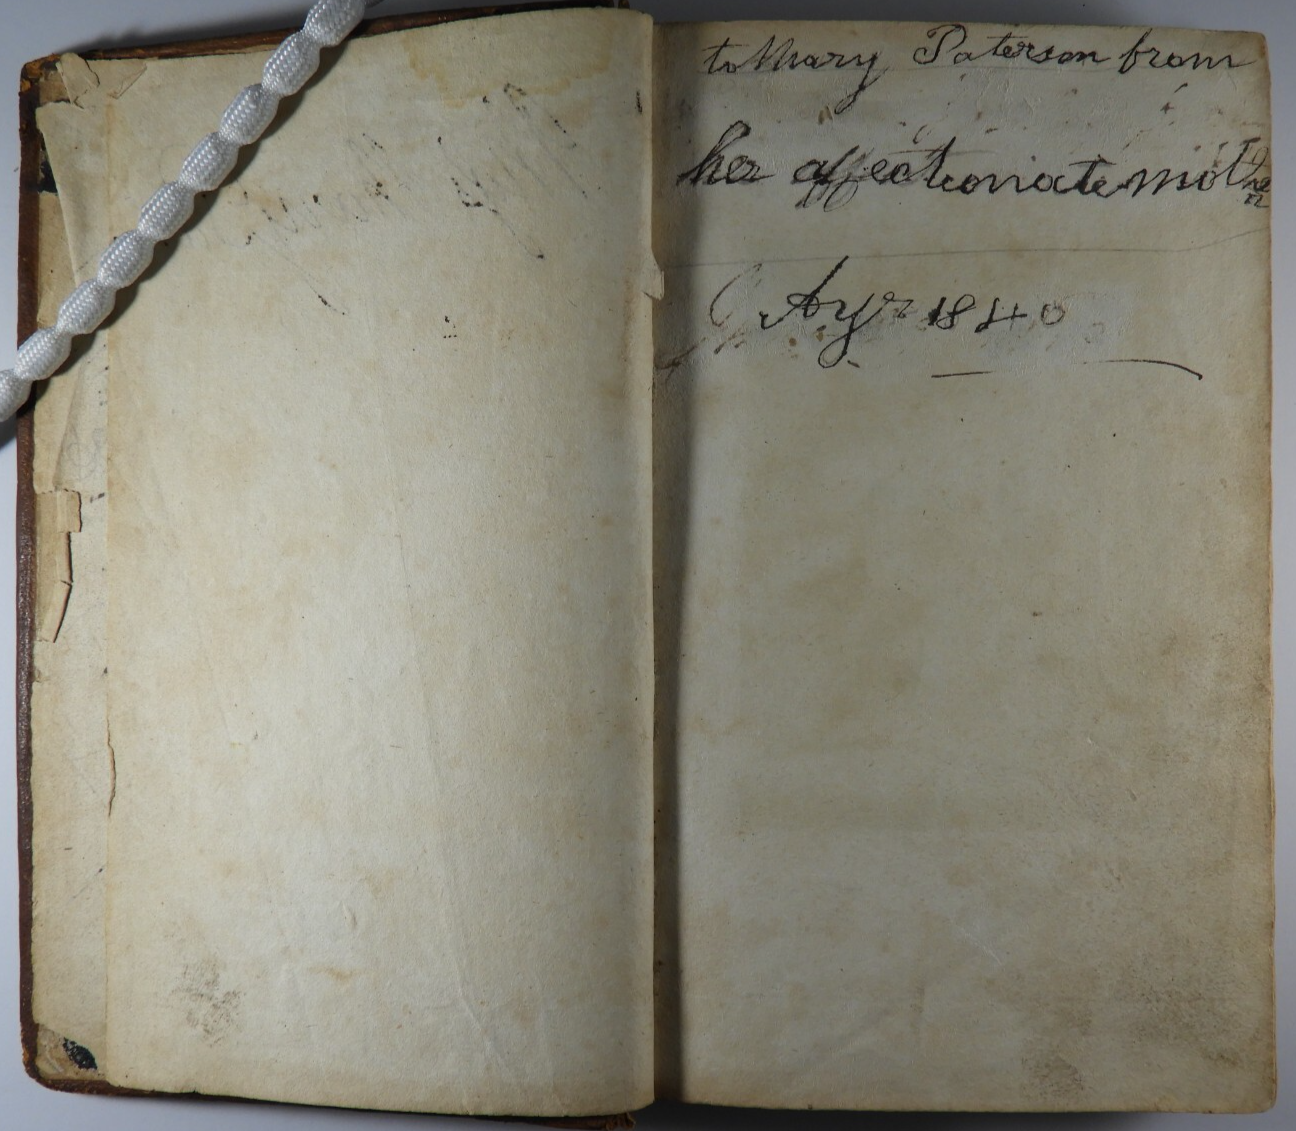 to Mary Paterson from
her affectionate mother
Ayr 1840